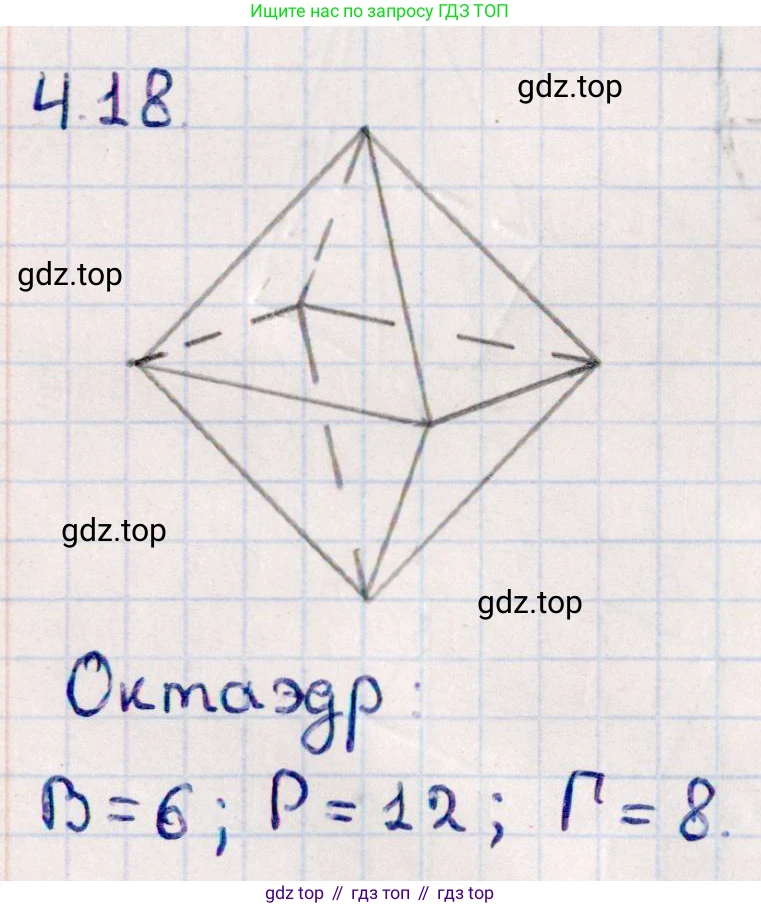 Ищите нас по запросу ГДЗ ТОП
4.18.
gdz.top
gdz.top
gdz.top
gdz.top
Октаэдр:
В = 6; Р = 12; Г = 8.
gdz top // гдз топ // гдз top